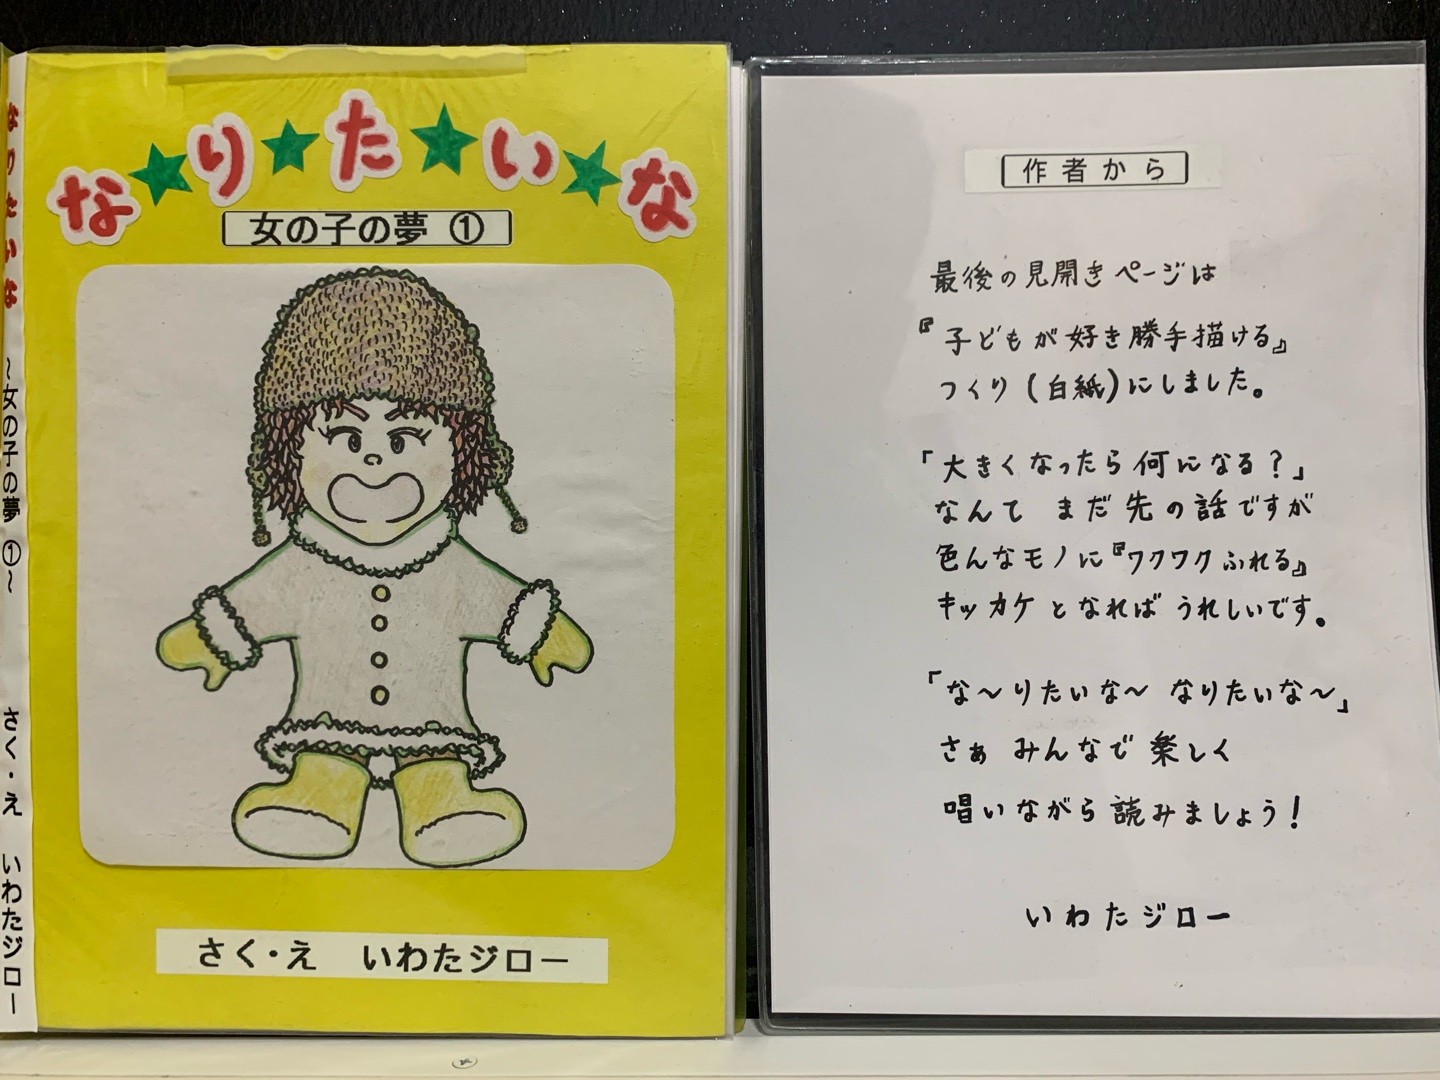 な★り★た★い★な
女の子の夢 ①
さく・え いわたジロー
なりたいな ～女の子の夢 ①～ さく・え いわたジロー
作者から
最後の見開きページは
『子どもが好き勝手描ける』
つくり(白紙)にしました。
「大きくなったら何になる?」
なんて まだ先の話ですが
色んなモノに『ワクワクふれる』
キッカケとなればうれしいです。
「な～りたいな～ なりたいな～」
さぁ みんなで楽しく
唱いながら読みましょう!
いわたジロー